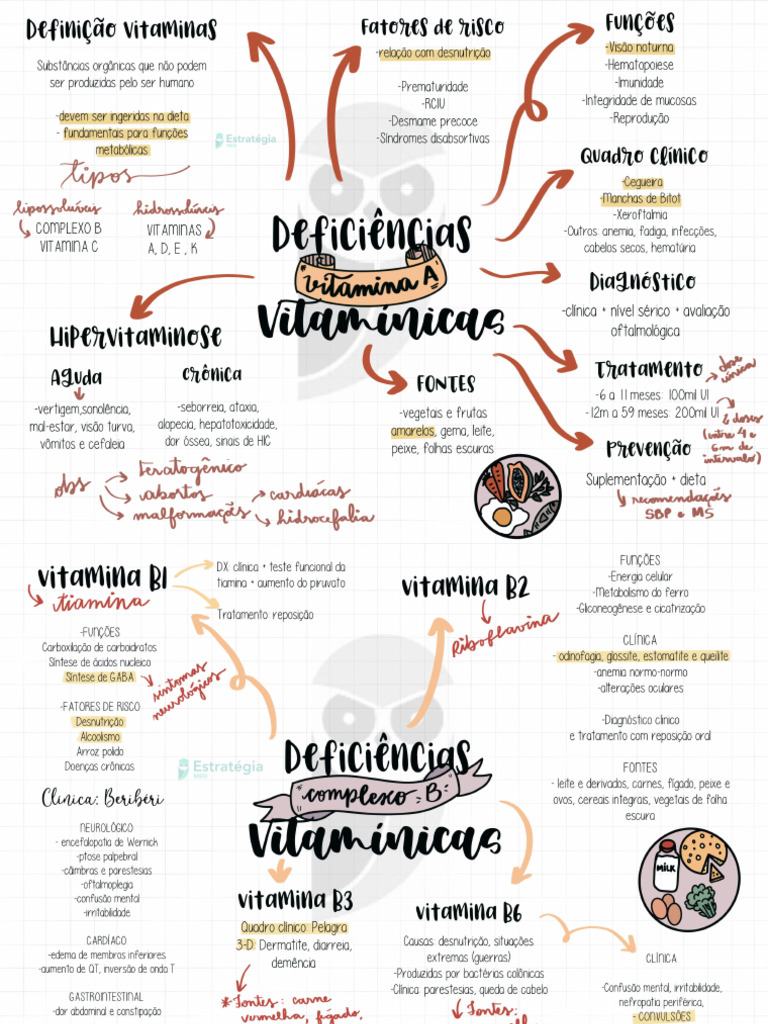 Definição vitaminas
Substâncias orgânicas que não podem
ser produzidas pelo ser humano
-devem ser ingeridas na dieta
- fundamentais para funções
metabólicas
Estratégia
MED
tipos
lipossolúveis
COMPLEXO B
VITAMINA C
hidrossolúveis
VITAMINAS
A, D, E , K
Fatores de risco
-relação com desnutrição
-Prematuridade
-RCIU
-Desmame precoce
-Síndromes disabsortivas
Funções
-Visão noturna
-Hematopoiese
-Imunidade
-Integridade de mucosas
-Reprodução
Quadro clínico
-Cegueira
-Manchas de Bitot
-Xeroftalmia
-Outros: anemia, fadiga, infecções,
cabelos secos, hematúria
Deficiências
vitamina A
Vitamínicas
Diagnóstico
-clínica + nível sérico + avaliação
oftalmológica
Tratamento
dose
única
-6 a 11 meses: 100mil UI
-12m a 59 meses: 200mil UI
doses
(entre 4 e
6m de
intervalo)
Prevenção
Suplementação + dieta
recomendações
SBP e MS
Hipervitaminose
Aguda
-vertigem,sonolência,
mal-estar, visão turva,
vômitos e cefaleia
crônica
-seborreia, ataxia,
alopecia, hepatotoxicidade,
dor óssea, sinais de HIC
obs
teratogênico
abortos
malformações
cardíacas
hidrocefalia
FONTES
-vegetais e frutas
amarelos, gema, leite,
peixe, folhas escuras
vitamina B1
tiamina
DX clínica + teste funcional da
tiamina + aumento do piruvato
Tratamento reposição
-FUNÇÕES
Carboxilação de carboidratos
Síntese de ácidos nucleico
Síntese de GABA
sintomas
neurológicos
-FATORES DE RISCO
Desnutrição
Alcoolismo
Arroz polido
Doenças crônicas
Clínica: Beribéri
NEUROLÓGICO
- encefalopatia de Wernick
-ptose palpebral
-câmbras e parestesias
-oftalmoplegia
-confusão mental
-irritabilidade
CARDÍACO
-edema de membros inferiores
-aumento de QT, inversão de onda T
GASTROINTESTINAL
-dor abdominal e constipação
Estratégia
MED
vitamina B2
Riboflavina
FUNÇÕES
-Energia celular
-Metabolismo do ferro
-Gliconeogênese e cicatrização
CLÍNICA
- odinofagia, glossite, estomatite e queilite
-anemia normo-normo
-alterações oculares
-Diagnóstico clínico
e tratamento com reposição oral
FONTES
- leite e derivados, carnes, fígado, peixe e
ovos, cereais integrais, vegetais de folha
escura
MILK
Deficiências
complexo B
Vitamínicas
vitamina B3
Quadro clínico: Pelagra
3-D: Dermatite, diarreia,
demência
*Fontes: carne
vermelha, fígado,
vitamina B6
Causas: desnutrição, situações
extremas (guerras)
-Produzidas por bactérias colônicas
-Clínica: parestesias, queda de cabelo
Fontes:
CLÍNICA
-Confusão mental, irritabilidade,
nefropatia periférica,
- CONVULSÕES